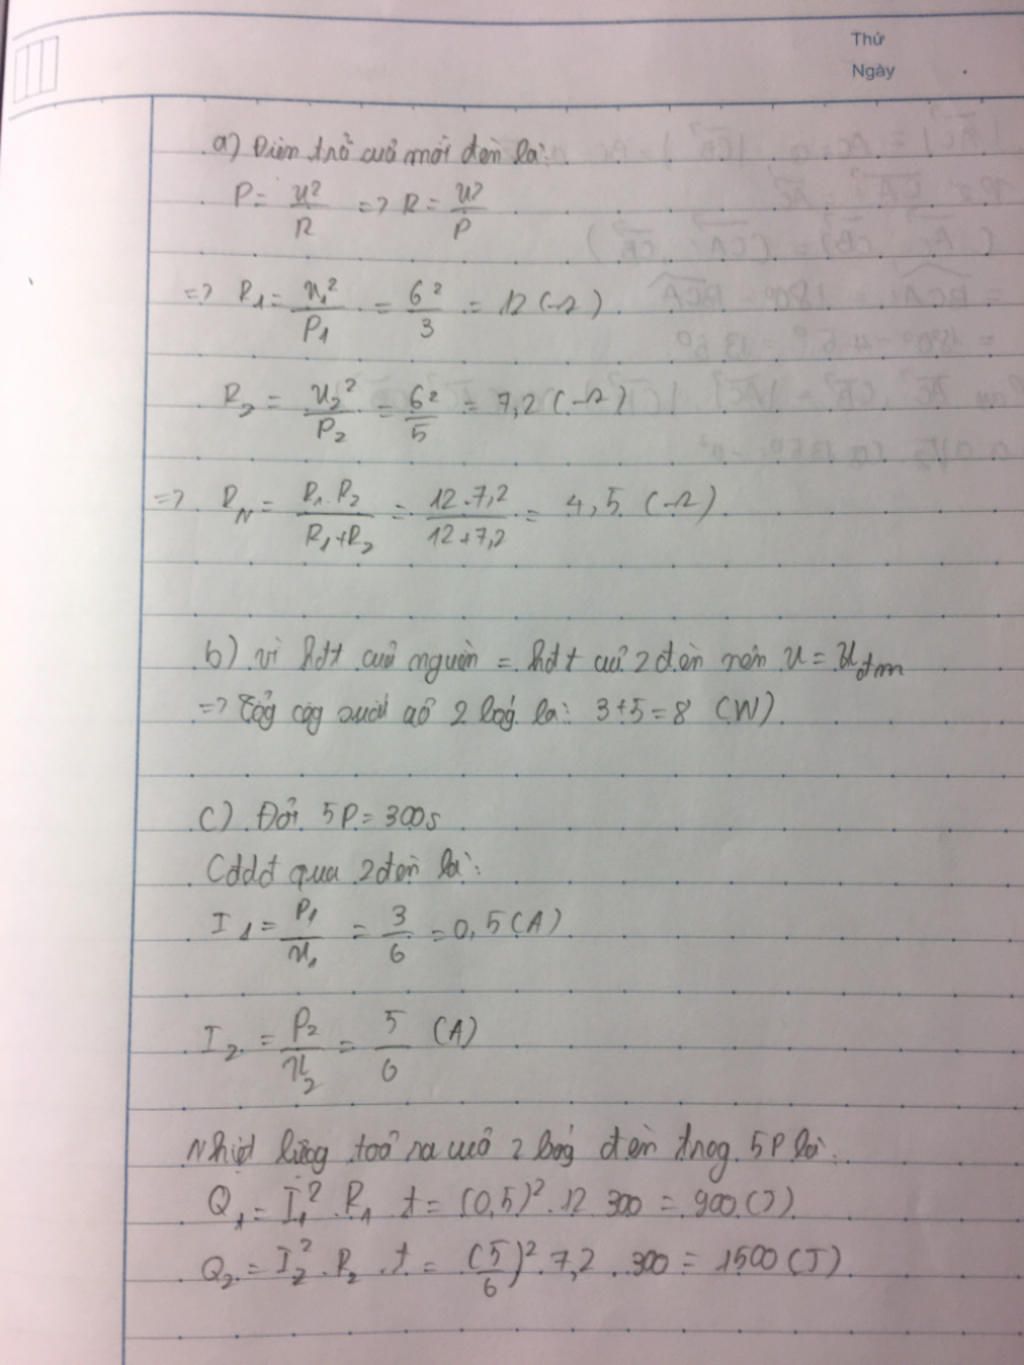 Thứ
Ngày
a) Điện trở của mỗi đèn là:
P = U²/R => R = U²/P
=> R₁ = U₁²/P₁ = 6²/3 = 12 (Ω)
R₂ = U₂²/P₂ = 6²/5 = 7,2 (Ω)
=> R_N = R₁.R₂/R₁+R₂ = 12.7,2/12+7,2 = 4,5 (Ω)
b) vì hđt của nguồn = hđt củ 2 đèn nên U = U_đm
=> Tổg côg suất củ 2 bóg là: 3+5=8 (W)
c) Đổi 5P = 300s
Cđdđ qua 2 đèn là:
I₁ = P₁/U₁ = 3/6 = 0,5 (A)
I₂ = P₂/U₂ = 5/6 (A)
Nhiệt lượg toả ra của 2 bóg đèn trog 5P là:
Q₁ = I₁².R₁.t = (0,5)².12.300 = 900 (J)
Q₂ = I₂².R₂.t = (5/6)².7,2.300 = 1500 (J)